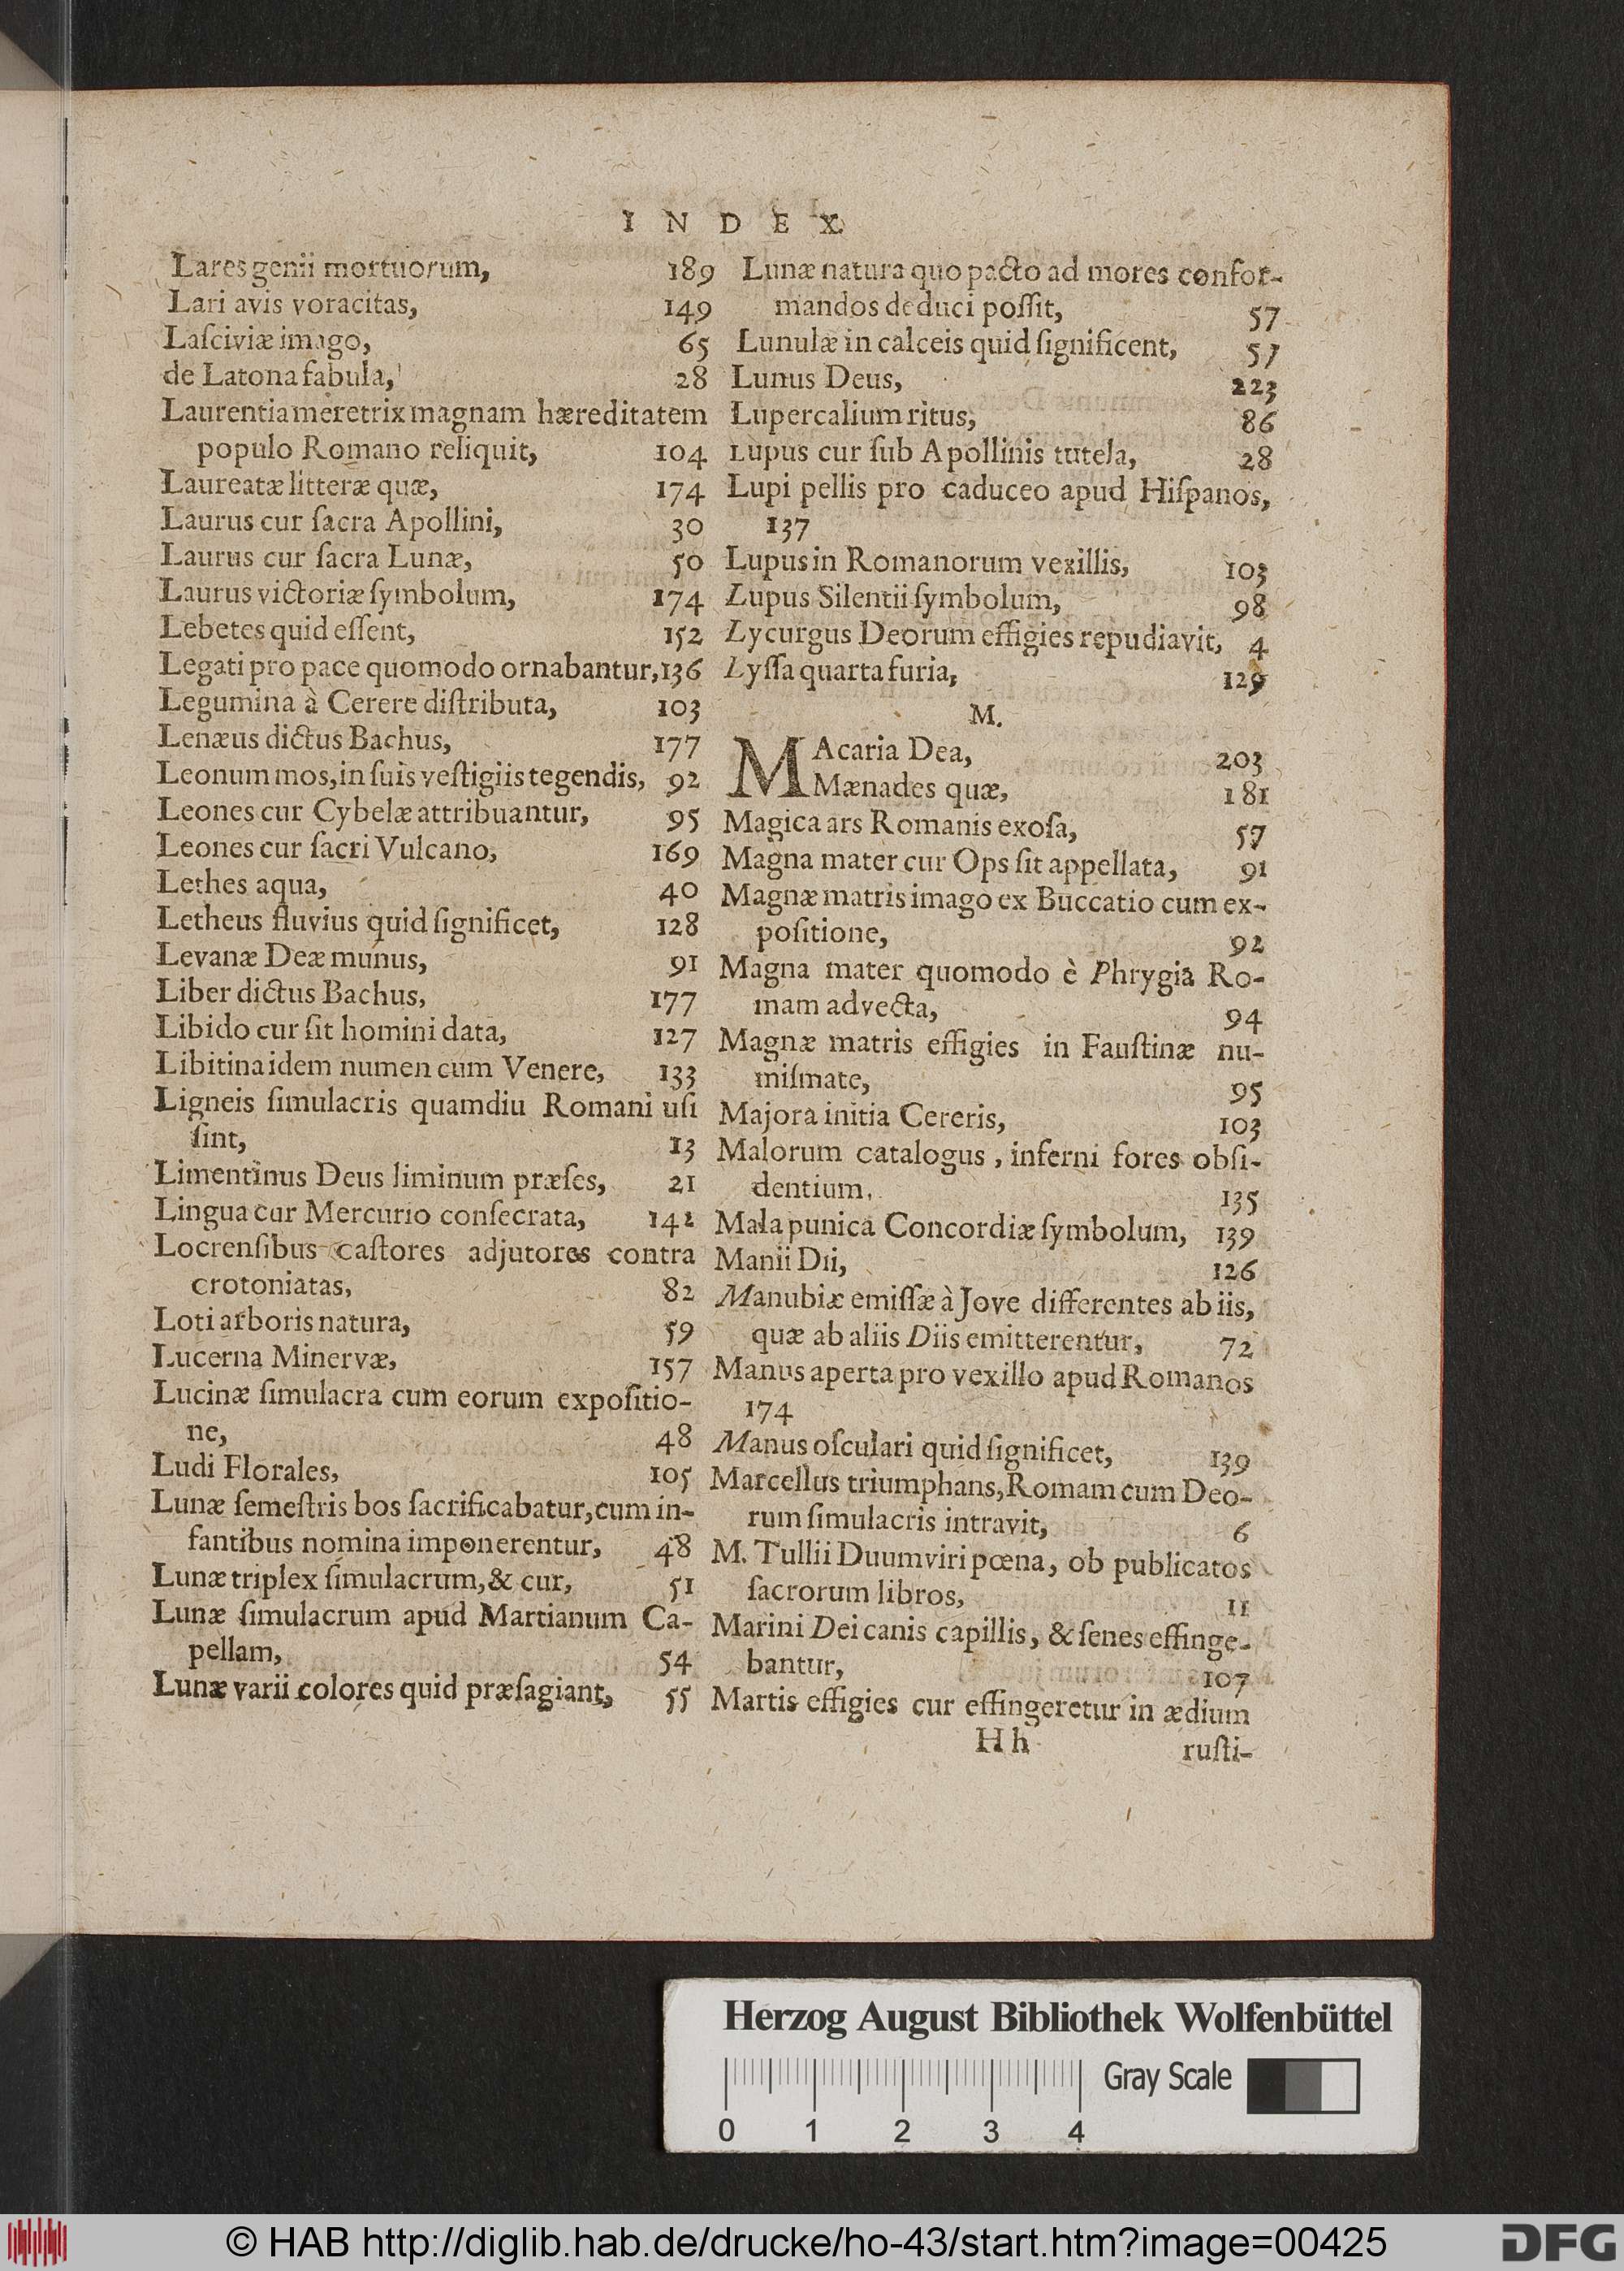 INDEX
Lares genii mortuorum, 189
Lari avis voracitas, 149
Laſciviæ imago, 65
de Latona fabula, 28
Laurentia meretrix magnam hæreditatem
populo Romano reliquit, 104
Laureatæ litteræ quæ, 174
Laurus cur ſacra Apollini, 30
Laurus cur ſacra Lunæ, 50
Laurus victoriæ ſymbolum, 174
Lebetes quid eſſent, 152
Legati pro pace quomodo ornabantur, 136
Legumina à Cerere diſtributa, 103
Lenæus dictus Bachus, 177
Leonum mos, in ſuis veſtigiis tegendis, 92
Leones cur Cybelæ attribuantur, 95
Leones cur ſacri Vulcano, 169
Lethes aqua, 40
Letheus fluvius quid ſignificet, 128
Levanæ Deæ munus, 91
Liber dictus Bachus, 177
Libido cur ſit homini data, 127
Libitina idem numen cum Venere, 133
Ligneis ſimulacris quamdiu Romani uſi
ſint, 13
Limentinus Deus liminum præſes, 21
Lingua cur Mercurio conſecrata, 142
Locrenſibus caſtores adjutores contra
crotoniatas, 82
Loti arboris natura, 59
Lucerna Minervæ, 157
Lucinæ ſimulacra cum eorum expoſitio-
ne, 48
Ludi Florales, 105
Lunæ ſemeſtris bos ſacrificabatur, cum in-
fantibus nomina imponerentur, 48
Lunæ triplex ſimulacrum, & cur, 51
Lunæ ſimulacrum apud Martianum Ca-
pellam, 54
Lunæ varii colores quid præſagiant, 55
Lunæ natura quo pacto ad mores confor-
mandos deduci poſſit, 57
Lunulæ in calceis quid ſignificent, 57
Lunus Deus, 223
Lupercalium ritus, 86
Lupus cur ſub Apollinis tutela, 28
Lupi pellis pro caduceo apud Hiſpanos,
137
Lupus in Romanorum vexillis, 103
Lupus Silentii ſymbolum, 98
Lycurgus Deorum effigies repudiavit, 4
Lyſſa quarta furia, 129
M.
MAcaria Dea, 203
Mænades quæ, 181
Magica ars Romanis exoſa, 57
Magna mater cur Ops ſit appellata, 91
Magnæ matris imago ex Buccatio cum ex-
poſitione, 92
Magna mater quomodo è Phrygia Ro-
mam advecta, 94
Magnæ matris effigies in Fauſtinæ nu-
miſmate, 95
Majora initia Cereris, 103
Malorum catalogus, inferni fores obſi-
dentium, 135
Mala punica Concordiæ ſymbolum, 139
Manii Dii, 126
Manubiæ emiſſæ à Jove differentes ab iis,
quæ ab aliis Diis emitterentur, 72
Manus aperta pro vexillo apud Romanos
174
Manus oſculari quid ſignificet, 139
Marcellus triumphans, Romam cum Deo-
rum ſimulacris intravit, 6
M. Tullii Duumviri pœna, ob publicatos
ſacrorum libros, 11
Marini Dei canis capillis, & ſenes effinge-
bantur, 107
Martis effigies cur effingeretur in ædium
Hh ruſti-
Herzog August Bibliothek Wolfenbüttel
Gray Scale
0 1 2 3 4
© HAB http://diglib.hab.de/drucke/ho-43/start.htm?image=00425
DFG